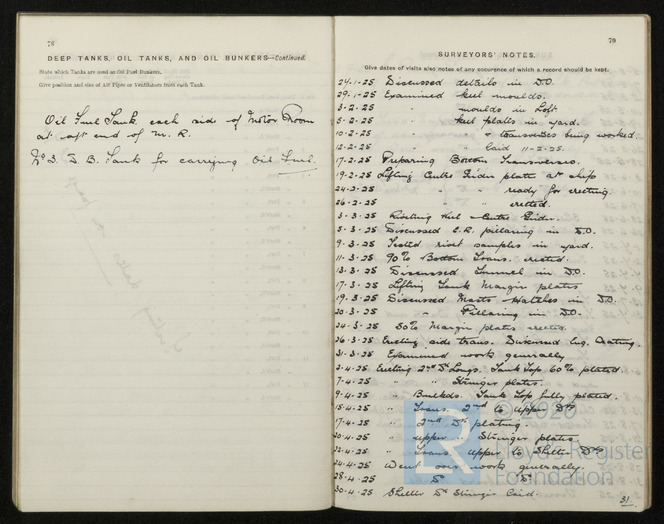 78
DEEP TANKS, OIL TANKS, AND OIL BUNKERS—Continued.
State which Tanks are used as Oil Fuel Bunkers.
Give position and size of Air Pipes or Ventilators from each Tank.
Oil Fuel Tank each side of Motor Room
at aft end of M. R.
No 3. D B. Tank for carrying Oil Fuel.
79
SURVEYORS' NOTES.
Give dates of visits also notes of any occurence of which a record should be kept.
24-1-25 Discussed details in D.O.
29-1-25 Examined keel moulds.
3-2-25 " moulds in Loft
5-2-25 " keel plates in yard.
10-2-25 " " transverses being worked.
12-2-25 " laid 11-2-25.
17-2-25 Preparing Bottom Transverses.
19-2-25 Lifting Centre Girder plate at ship
24-2-25 " " ready for erecting.
26-2-25 " " erected.
3-3-25 Riveting Keel Centre Girder.
5-3-25 Discussed E.R. pillaring in D.O.
9-3-25 Tested rivet samples in yard.
11-3-25 90% Bottom Trans. erected.
13-3-25 Discussed Tunnel in D.O.
17-3-25 Lifting Tank Margin plates
19-3-25 Discussed Masts Hatches in D.O.
20-3-25 " Pillaring in D.O.
24-3-25 50% Margin plates erected.
26-3-25 Erecting side trans. Discussed Eng. Seating.
31-3-25 Examined work generally
2-4-25 Erecting 2nd Dk Longs. Tank Top 60% plated.
7-4-25 " " Stringer plates.
9-4-25 " Bulkds. Tank Top fully plated.
15-4-25 " Trans. 2nd to Upper Dk
17-4-25 " 2nd Dk plating.
20-4-25 " Upper " Stringer plates.
22-4-25 " Trans. Upper to Shelter Dk
24-4-25 Went over work generally.
28-4-25 Do Do
30-4-25 Shelter Dk Stringer Laid.
31
LR
© 2020
Lloyd's Register
Foundation